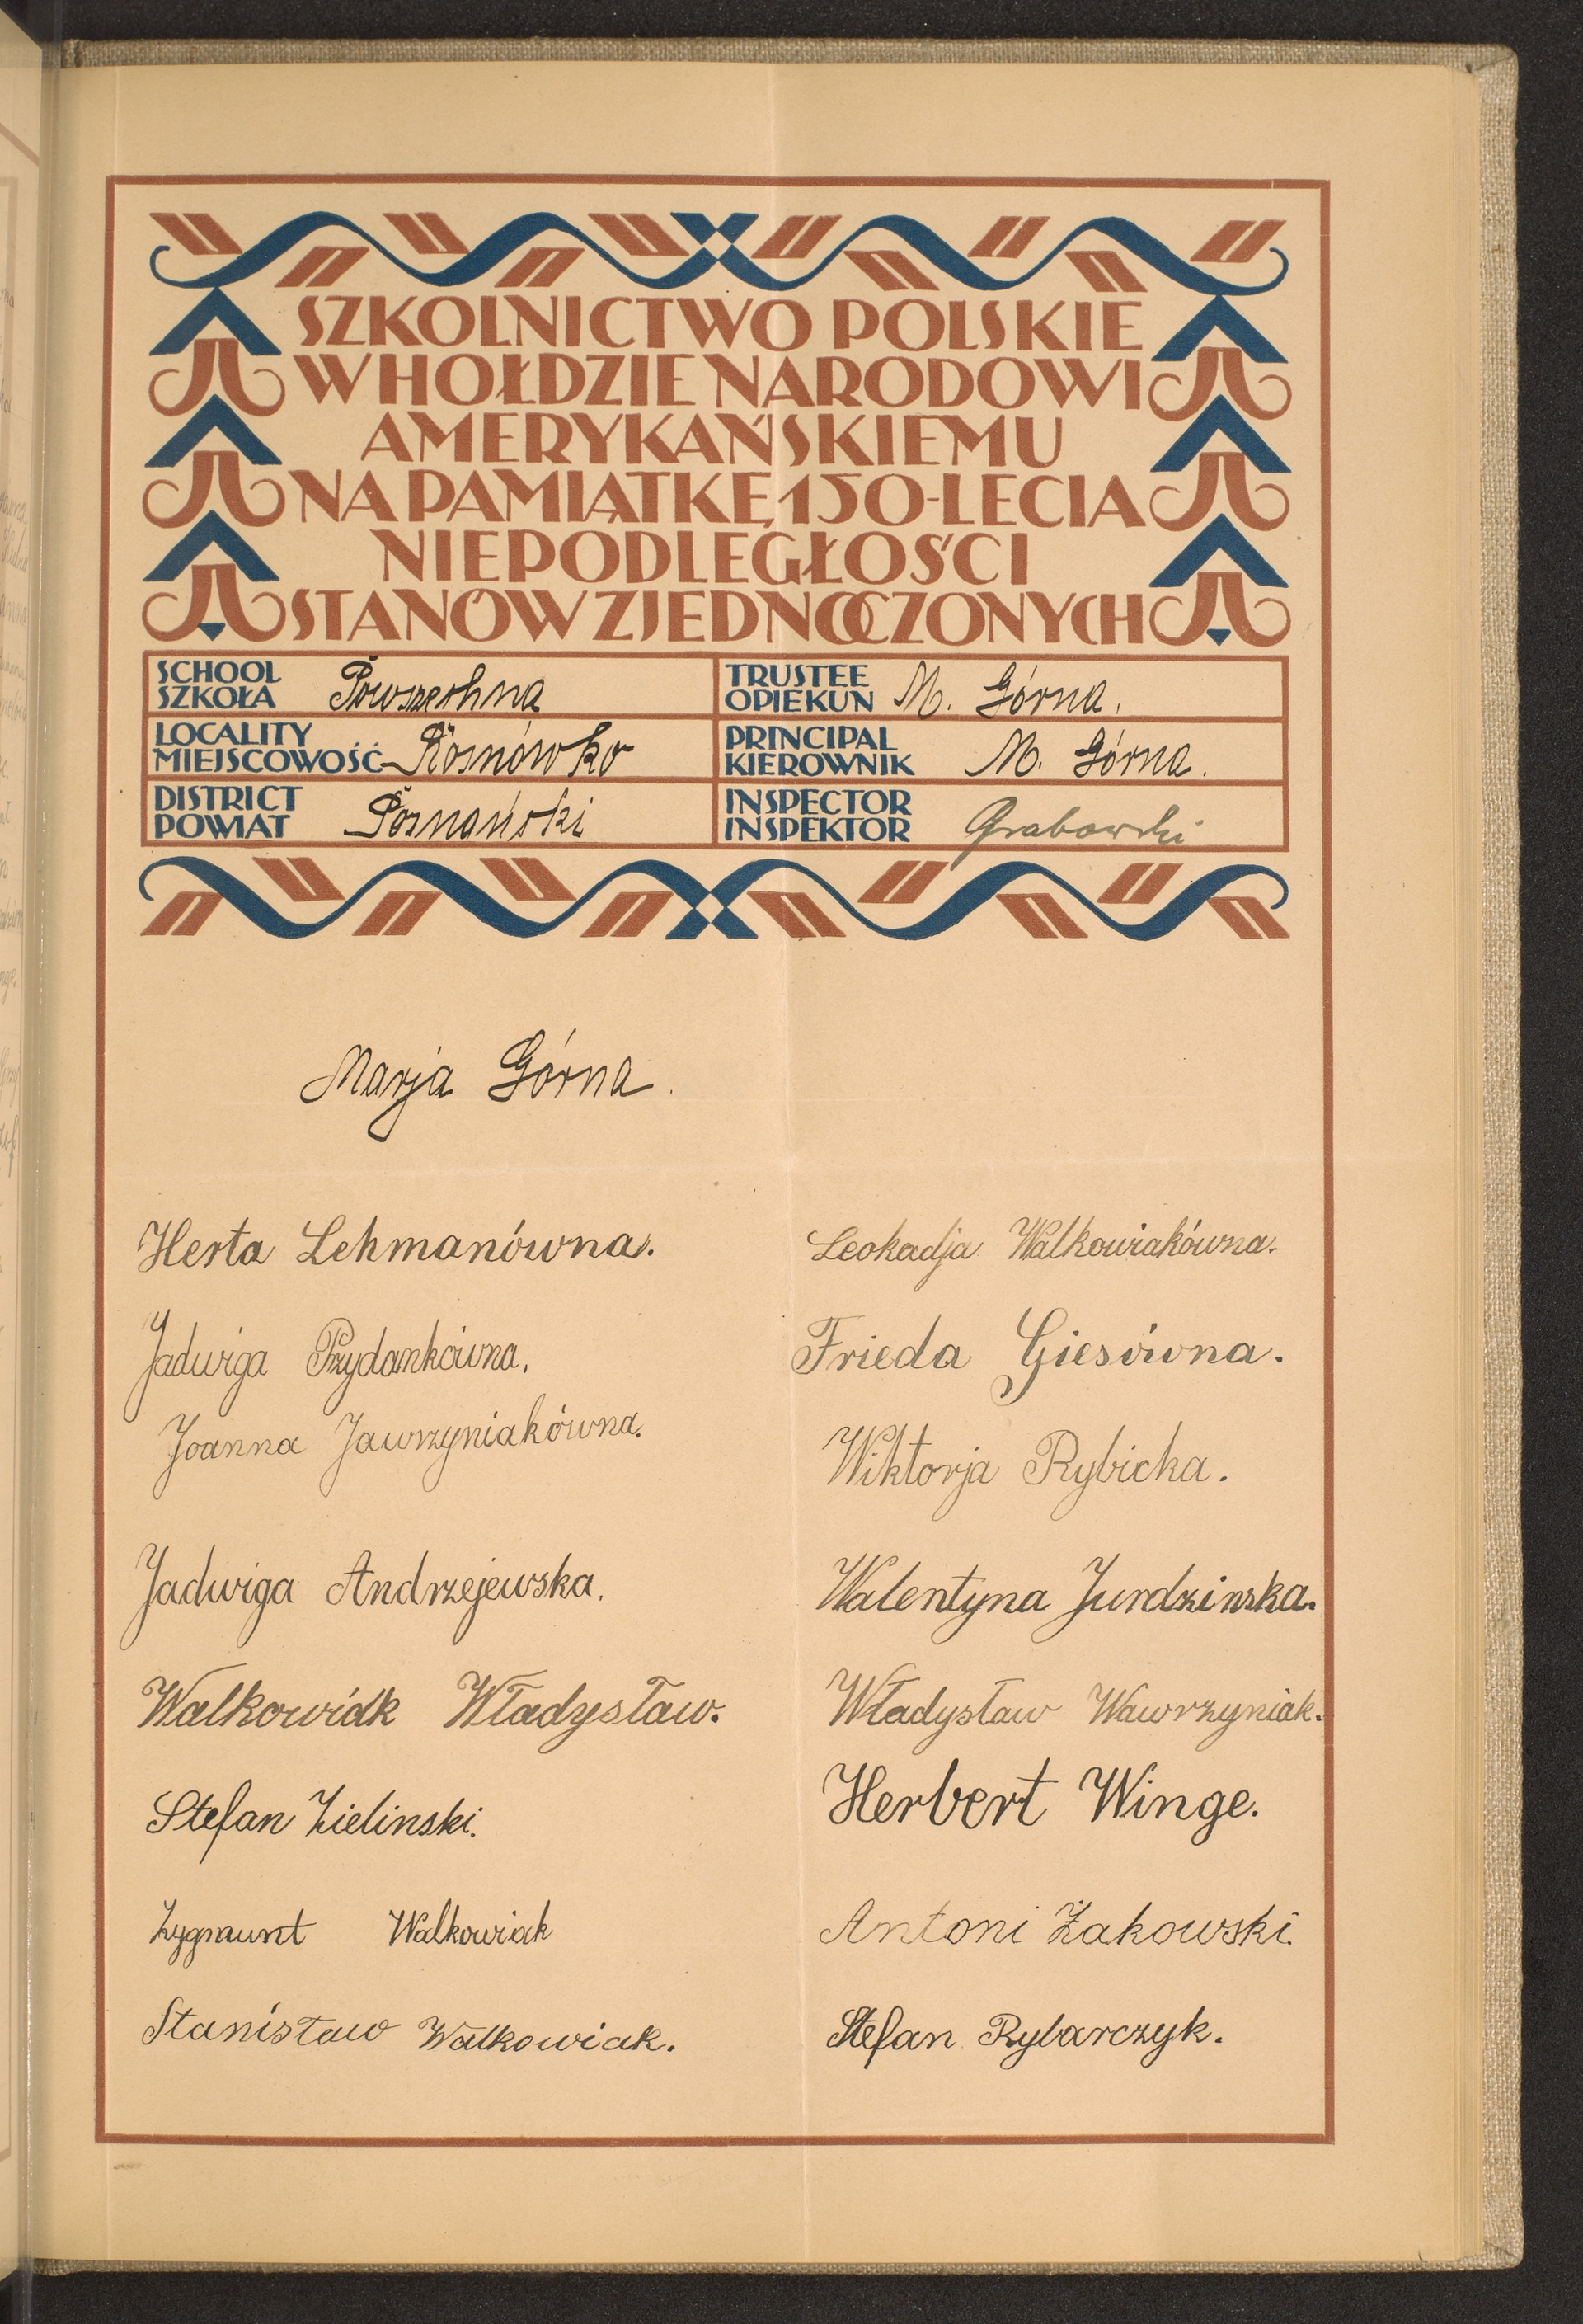 SZKOLNICTWO POLSKIE
W HOŁDZIE NARODOWI
AMERYKAŃSKIEMU
NA PAMIĄTKĘ 150-LECIA
NIEPODLEGŁOŚCI
STANÓW ZJEDNOCZONYCH
SCHOOL
SZKOŁA Powszechna
TRUSTEE
OPIEKUN M. Górna.
LOCALITY
MIEJSCOWOŚĆ Rosnówko
PRINCIPAL
KIEROWNIK M. Górna.
DISTRICT
POWIAT Poznański
INSPECTOR
INSPEKTOR Grabowski
Marja Górna.
Herta Lehmanówna.
Leokadja Walkowiakówna.
Jadwiga Przydankówna.
Frieda Giesówna.
Joanna Jawrzyniakówna.
Wiktorja Rybicka.
Jadwiga Andrzejewska.
Walentyna Jurdzinska.
Walkowiak Władysław.
Władysław Wawrzyniak.
Stefan Zielinski.
Herbert Winge.
Zygmunt Walkowiak
Antoni Żakowski.
Stanisław Walkowiak.
Stefan Rybarczyk.